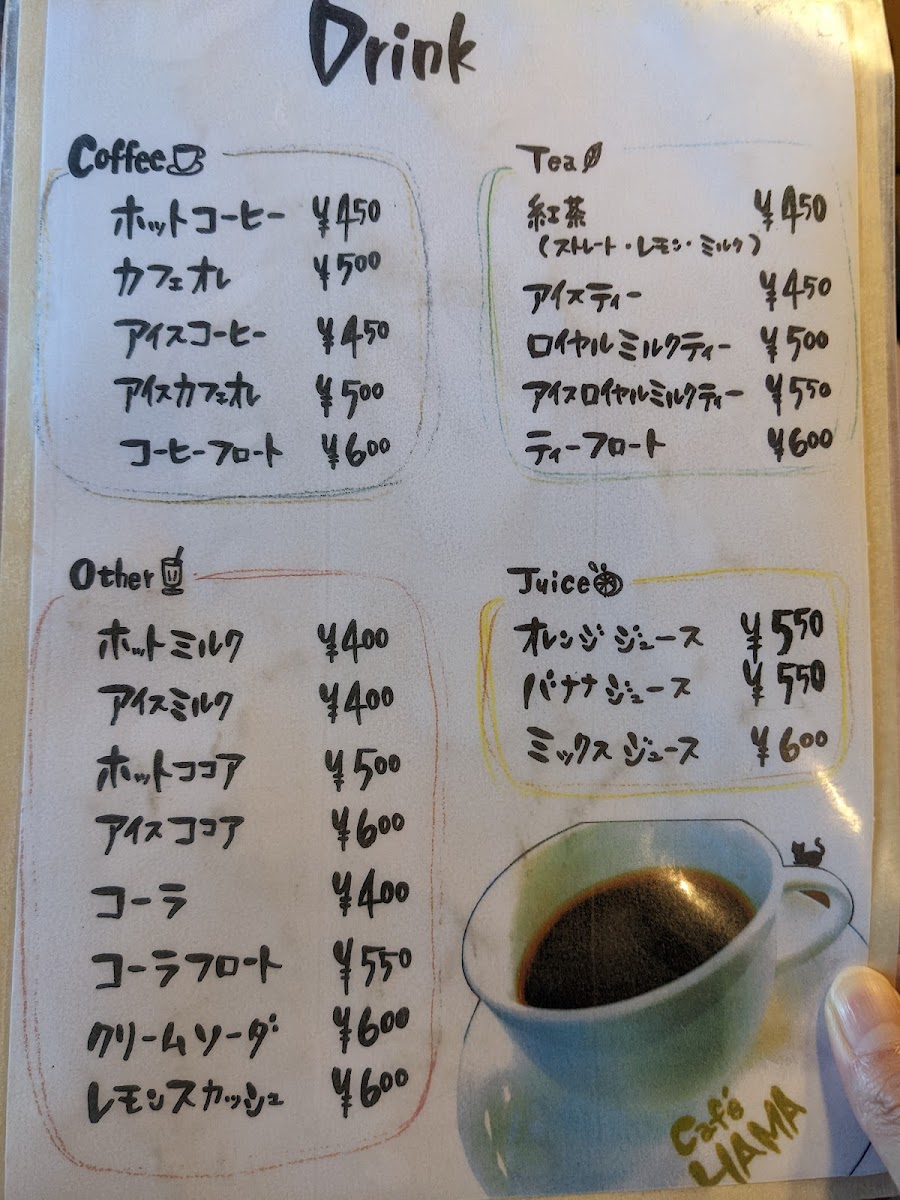 Drink
Coffee
ホットコーヒー ¥450
カフェオレ ¥500
アイスコーヒー ¥450
アイスカフェオレ ¥500
コーヒーフロート ¥600
Tea
紅茶 ¥450
(ストレート・レモン・ミルク)
アイスティー ¥450
ロイヤルミルクティー ¥500
アイスロイヤルミルクティー ¥550
ティーフロート ¥600
Other
ホットミルク ¥400
アイスミルク ¥400
ホットココア ¥500
アイスココア ¥600
コーラ ¥400
コーラフロート ¥550
クリームソーダ ¥600
レモンスカッシュ ¥600
Juice
オレンジジュース ¥550
バナナジュース ¥550
ミックスジュース ¥600
Café
HAMA